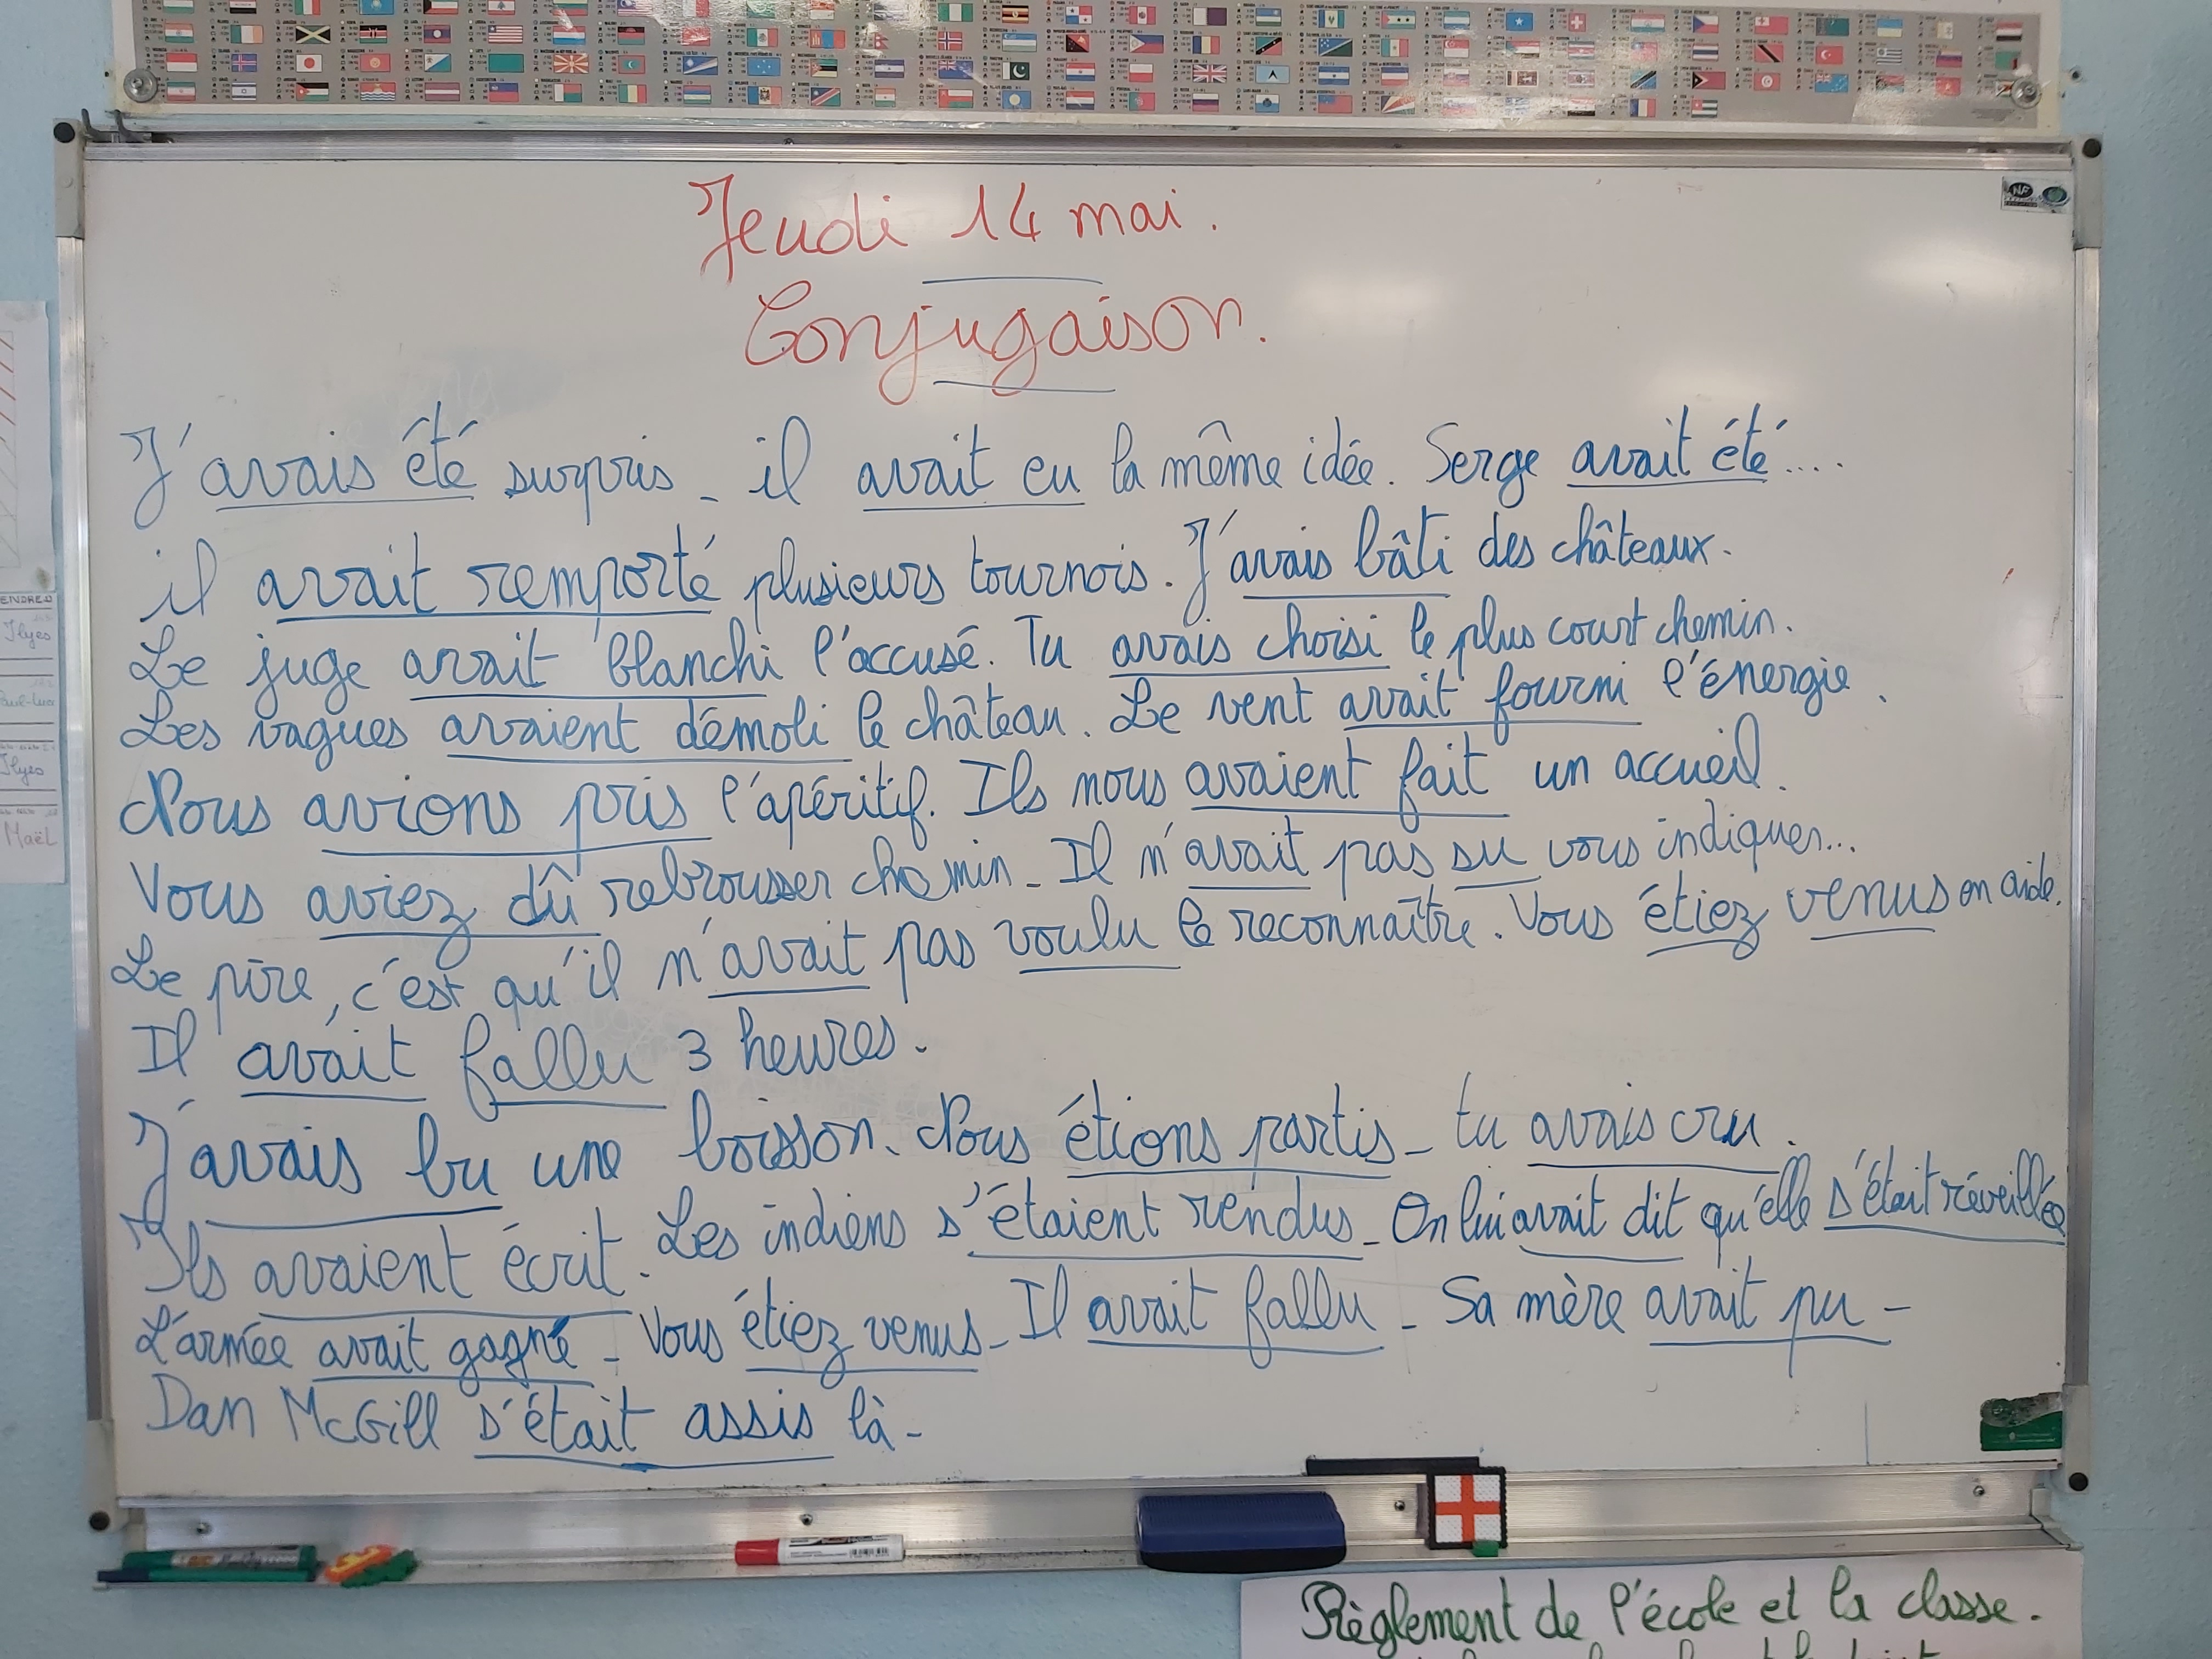 Jeudi 14 mai.
Conjugaison.
J'avais été surpris - il avait eu la même idée. Serge avait été....
il avait remporté plusieurs tournois. J'avais bâti des châteaux.
Le juge avait blanchi l'accusé. Tu avais choisi le plus court chemin.
Les vagues avaient démoli le château. Le vent avait fourni l'énergie.
Nous avions pris l'apéritif. Ils nous avaient fait un accueil.
Vous aviez dû rebrousser chemin - Il n'avait pas su vous indiquer...
Le pire, c'est qu'il n'avait pas voulu le reconnaître. Vous étiez venus en aide.
Il avait fallu 3 heures.
J'avais bu une boisson. Nous étions partis - tu avais cru.
Ils avaient écrit. Les indiens s'étaient rendus - On lui avait dit qu'elle s'était réveillée
L'armée avait gagné - Vous étiez venus - Il avait fallu - Sa mère avait pu -
Dan McGill s'était assis là -
Ilyes
Paul-Luc
Ilyes
Maël
Règlement de l'école et la classe.